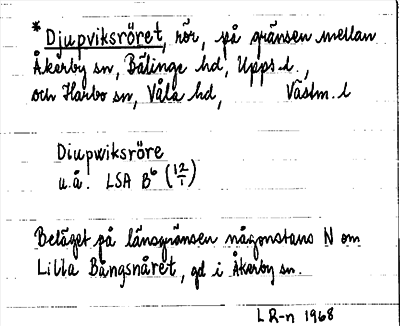 * Djupviksröret, rör, på gränsen mellan
Åkerby sn, Bälinge hd, Upps. l.,
och Harbo sn, Våla hd, Västm. l
Diupwiksröre
u.å. LSA B⁶ (12/1)
Beläget på länsgränsen någonstans N om
Lilla Bångsnåret, gd i Åkerby sn.
LR-n 1968